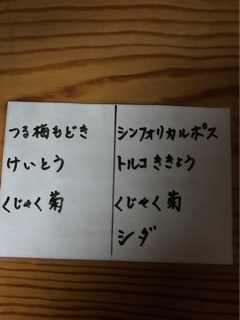 つる梅もどき
けいとう
くじゃく菊
シンフォリカルポス
トルコききょう
くじゃく菊
シダ